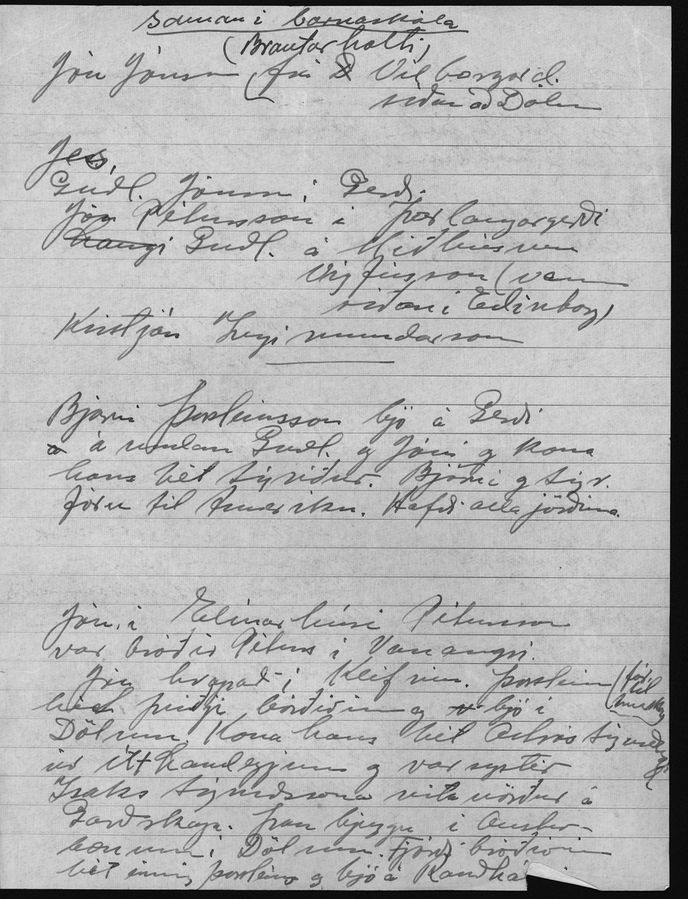 saman í barnaskóla
(Brautarholti)
Jón Jónsson (frá Vilborgarst.
síðar að Dölum
Jes,
Guðl. Jónsson í Gerði.
Jón Pétursson í Þorlaugargerði
Guðl. á Miðhúsum
Vigfússon (var
síðar í Edinborg)
Kristján Ingimundarson
Björn Þorsteinsson bjó á Gerði
á undan Guðl. og Jóni og kona
hans hét Sigríður. Björn og Sigr.
fóru til Ameríku. Hafði alla jörðina.
Jón í Elínarhúsi Pétursson
var bróðir Péturs í Vanangri.
Jón hrapaði í Klifinu. Þorsteinn (fór til Ameríku)
hét þriðji bróðirinn og bjó í
Dölum. Kona hans hét
úr Útlandeyjum og var systir
Ísaks Sigurðssonar vitavörður á
Garðskaga. Þau bjuggu í Austur-
bænum í Dölum. Fjórði bróðirinn
hét einnig Þorsteinn og bjó á